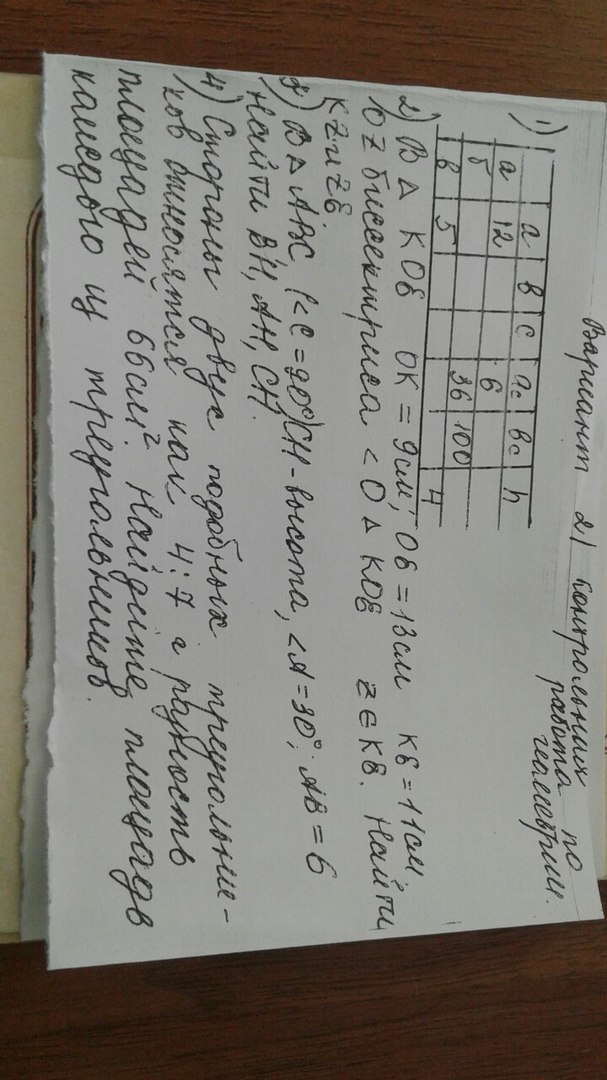 Вариант 2 | Контрольная
работа по
геометрии.
1)
a b c ac bc h
а 12 6
б 36 100
в 5 4
2) В △ КОВ ОК = 9см, ОВ = 13см КВ = 11см.
OZ биссектриса < О △ КОВ Z ∈ КВ. Найти
KZ и ZВ
3) В △ АВС (<С = 90°) СН - высота, <А = 30°; АВ = 6
Найти ВН, АН, СН.
4) Стороны двух подобных треугольни-
ков относятся как 4:7 а разность
площадей 66см². Найдите площадь
каждого из треугольников.